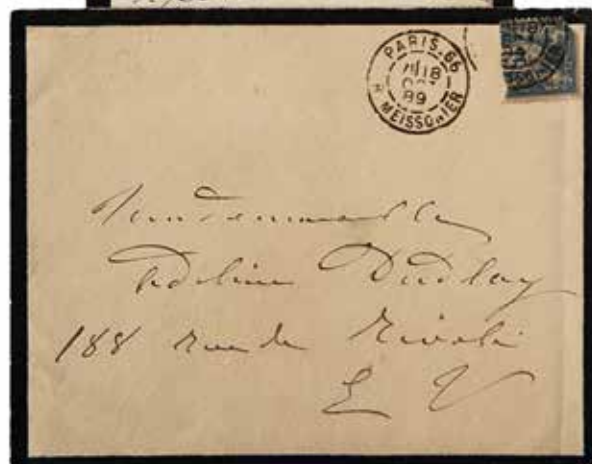 PARIS.66
18
OCT
89
R. MEISSONIER
Mademoiselle
Adeline Dudlay
188 rue de Rivoli
E V